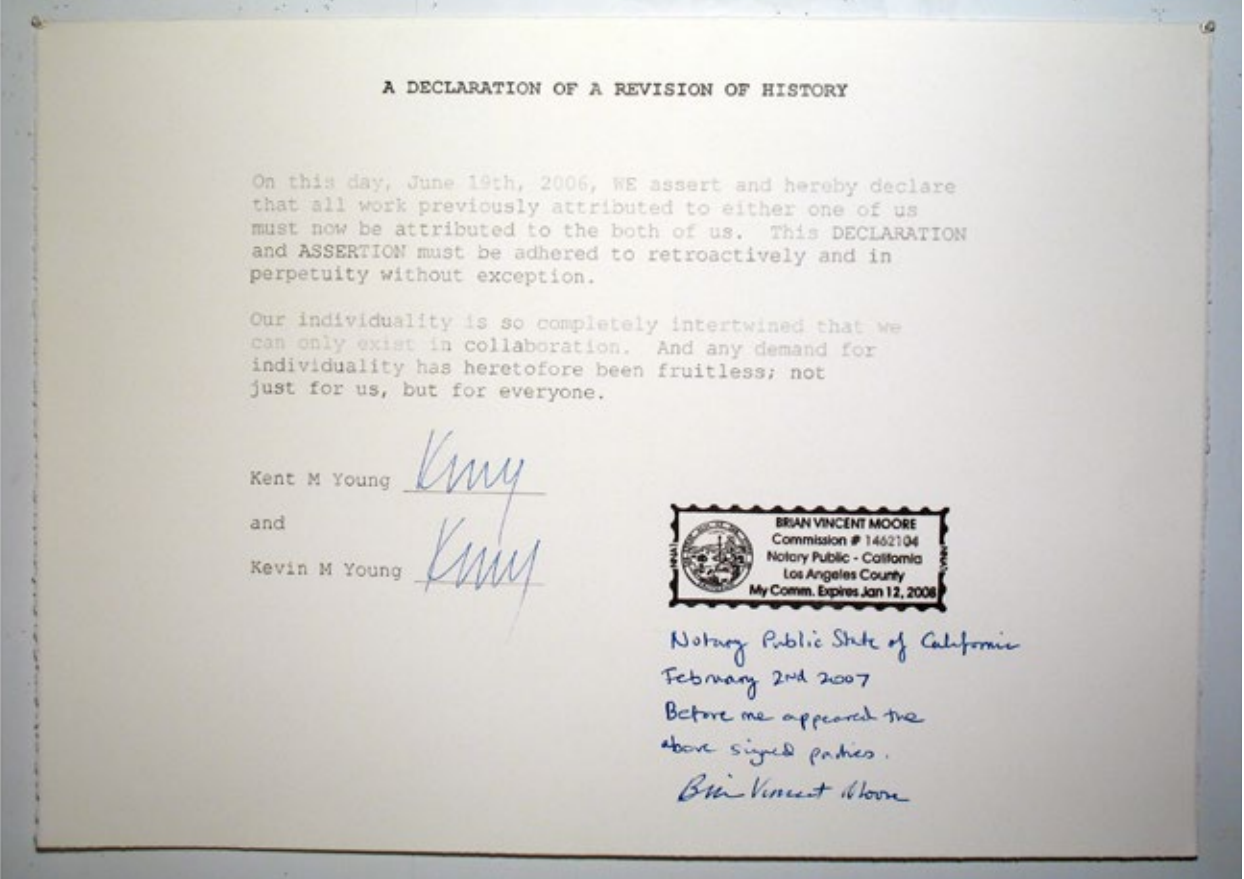 A DECLARATION OF A REVISION OF HISTORY
On this day, June 19th, 2006, WE assert and hereby declare
that all work previously attributed to either one of us
must now be attributed to the both of us. This DECLARATION
and ASSERTION must be adhered to retroactively and in
perpetuity without exception.
Our individuality is so completely intertwined that we
can only exist in collaboration. And any demand for
individuality has heretofore been fruitless; not
just for us, but for everyone.
Kent M Young KMY
and
Kevin M Young KMY
BRIAN VINCENT MOORE
Commission # 1462104
Notary Public - California
Los Angeles County
My Comm. Expires Jan 12, 2008
Notary Public State of California
February 2nd 2007
Before me appeared the
above signed parties.
Brian Vincent Moore